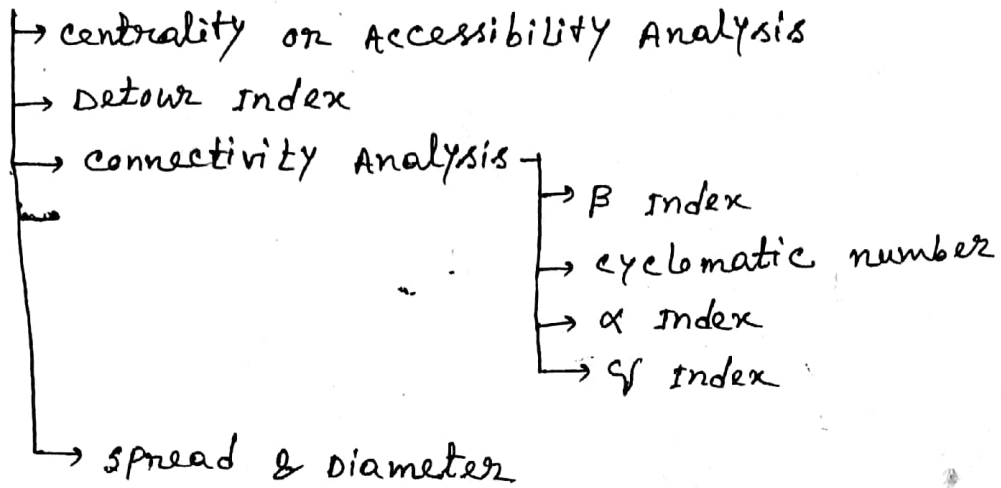 Centrality or Accessibility Analysis
Detour Index
Connectivity Analysis
β Index
cyclomatic number
α Index
γ Index
Spread & Diameter